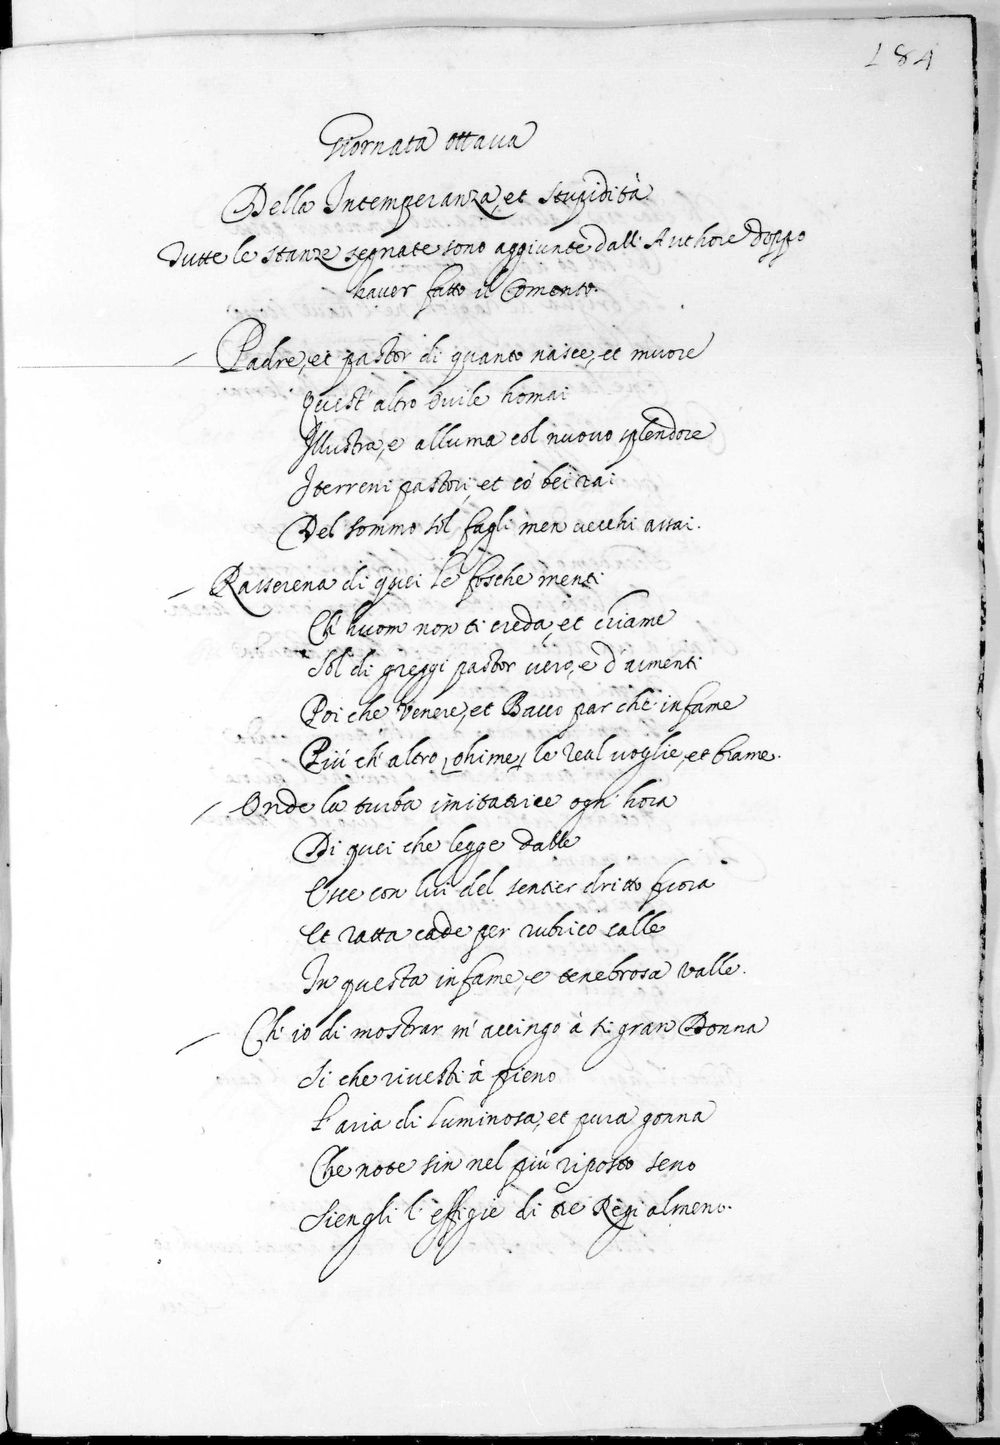 184
Giornata ottaua
Della Intemperanza, et stupidità
Tutte le stanze segnate sono aggiunte dall' Authore doppo
hauer fatto il Comento.
Padre, et pastor di quanto nasce, et muore
Quest' altro ouile homai
Illustra, e alluma col nuouo splendore
I terreni pastori, et co' bei rai
Del sommo sol fagli men uecchi assai.
Rasserena di quei le fosche menti
Ch' huom non ti creda, et chiame
Sol di greggi pastor uero, e d' armenti
Poi che Venere, et Bacco par che infame
Piú ch' altro, ohime, le real uoglie, et brame.
Onde la turba imitatrice ogni hora
Di quei che legge dalle
Esce con lui del sentier dritto fuora
Et ratta cade per rubrico calle
In questa infame, e tenebrosa valle.
Ch' io di mostrar m' accingo à ti gran Donna
Si che riuesti à pieno
L' aria di luminosa, et pura gonna
Che note sin nel piú riposto seno
Siengli l' effigie di tre Regi almeno.